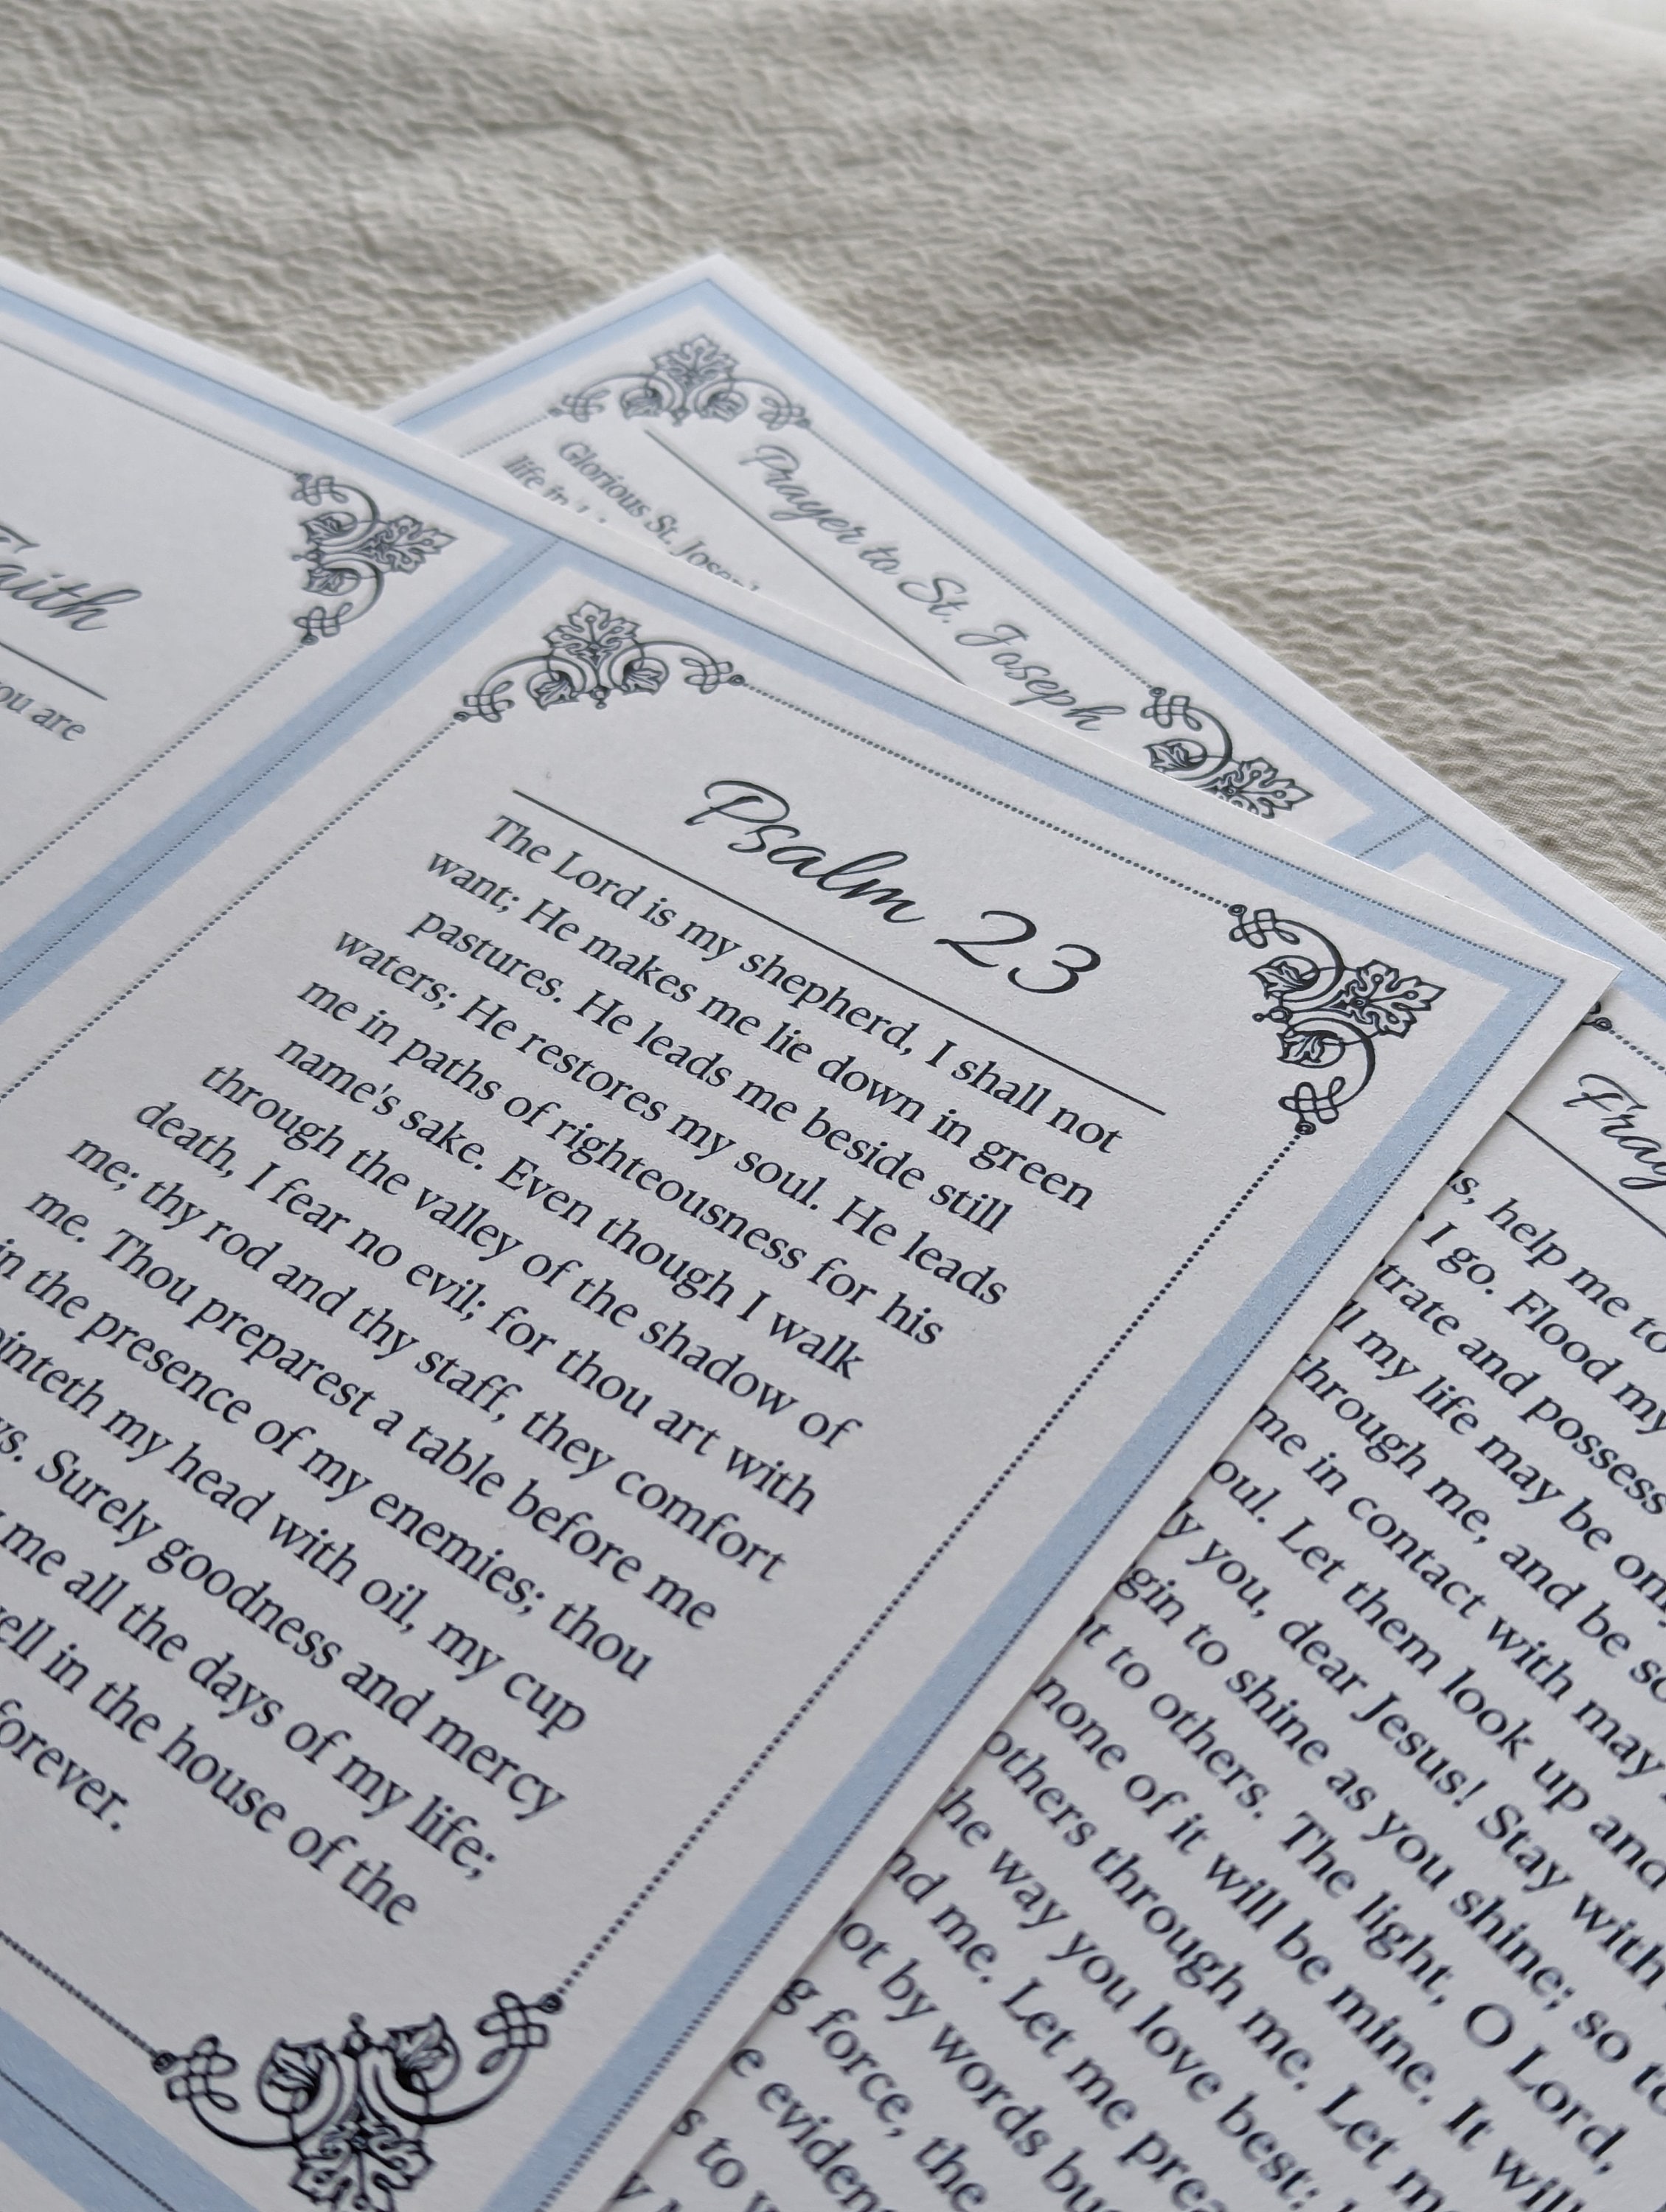 Faith
you are
Prayer to St. Joseph
Glorious St. Joseph
life in
Psalm 23
The Lord is my shepherd, I shall not
want; He makes me lie down in green
pastures. He leads me beside still
waters; He restores my soul. He leads
me in paths of righteousness for his
name's sake. Even though I walk
through the valley of the shadow of
death, I fear no evil; for thou art with
me; thy rod and thy staff, they comfort
me. Thou preparest a table before me
in the presence of my enemies; thou
ointeth my head with oil, my cup
ws. Surely goodness and mercy
me all the days of my life;
ell in the house of the
forever.
Frag
us, help me to
I go. Flood my
trate and possess
ll my life may be only
through me, and be so
me in contact with may
oul. Let them look up and
ly you, dear Jesus! Stay with
gin to shine as you shine; so to
ht to others. The light, O Lord,
none of it will be mine. It will
others through me. Let me
the way you love best:
nd me. Let me prea
ot by words bu
g force, the
e eviden
s to